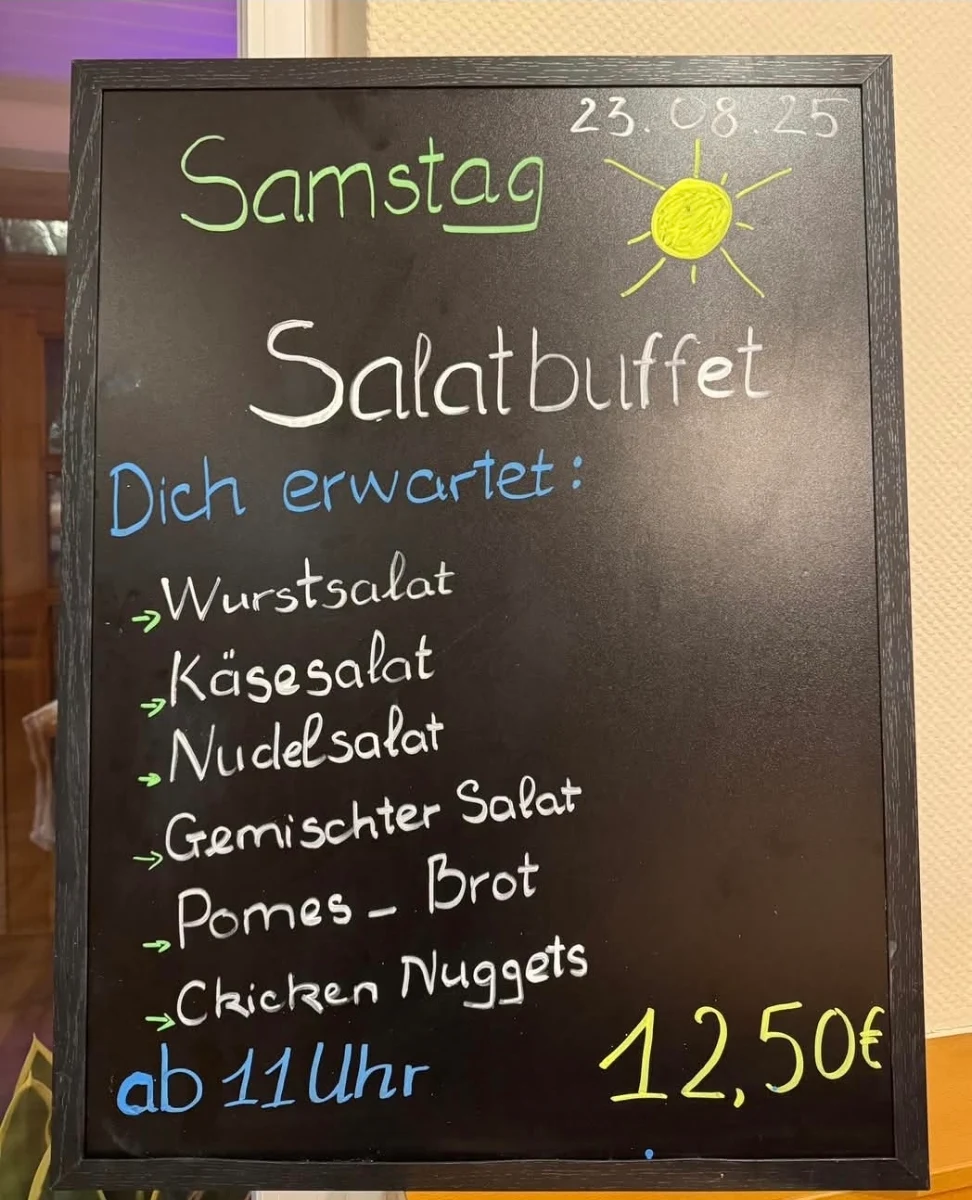 23.08.25
Samstag
Salatbuffet
Dich erwartet:
→Wurstsalat
→Käsesalat
→Nudelsalat
→Gemischter Salat
→Pomes - Brot
→Chicken Nuggets
ab 11 Uhr
12,50€